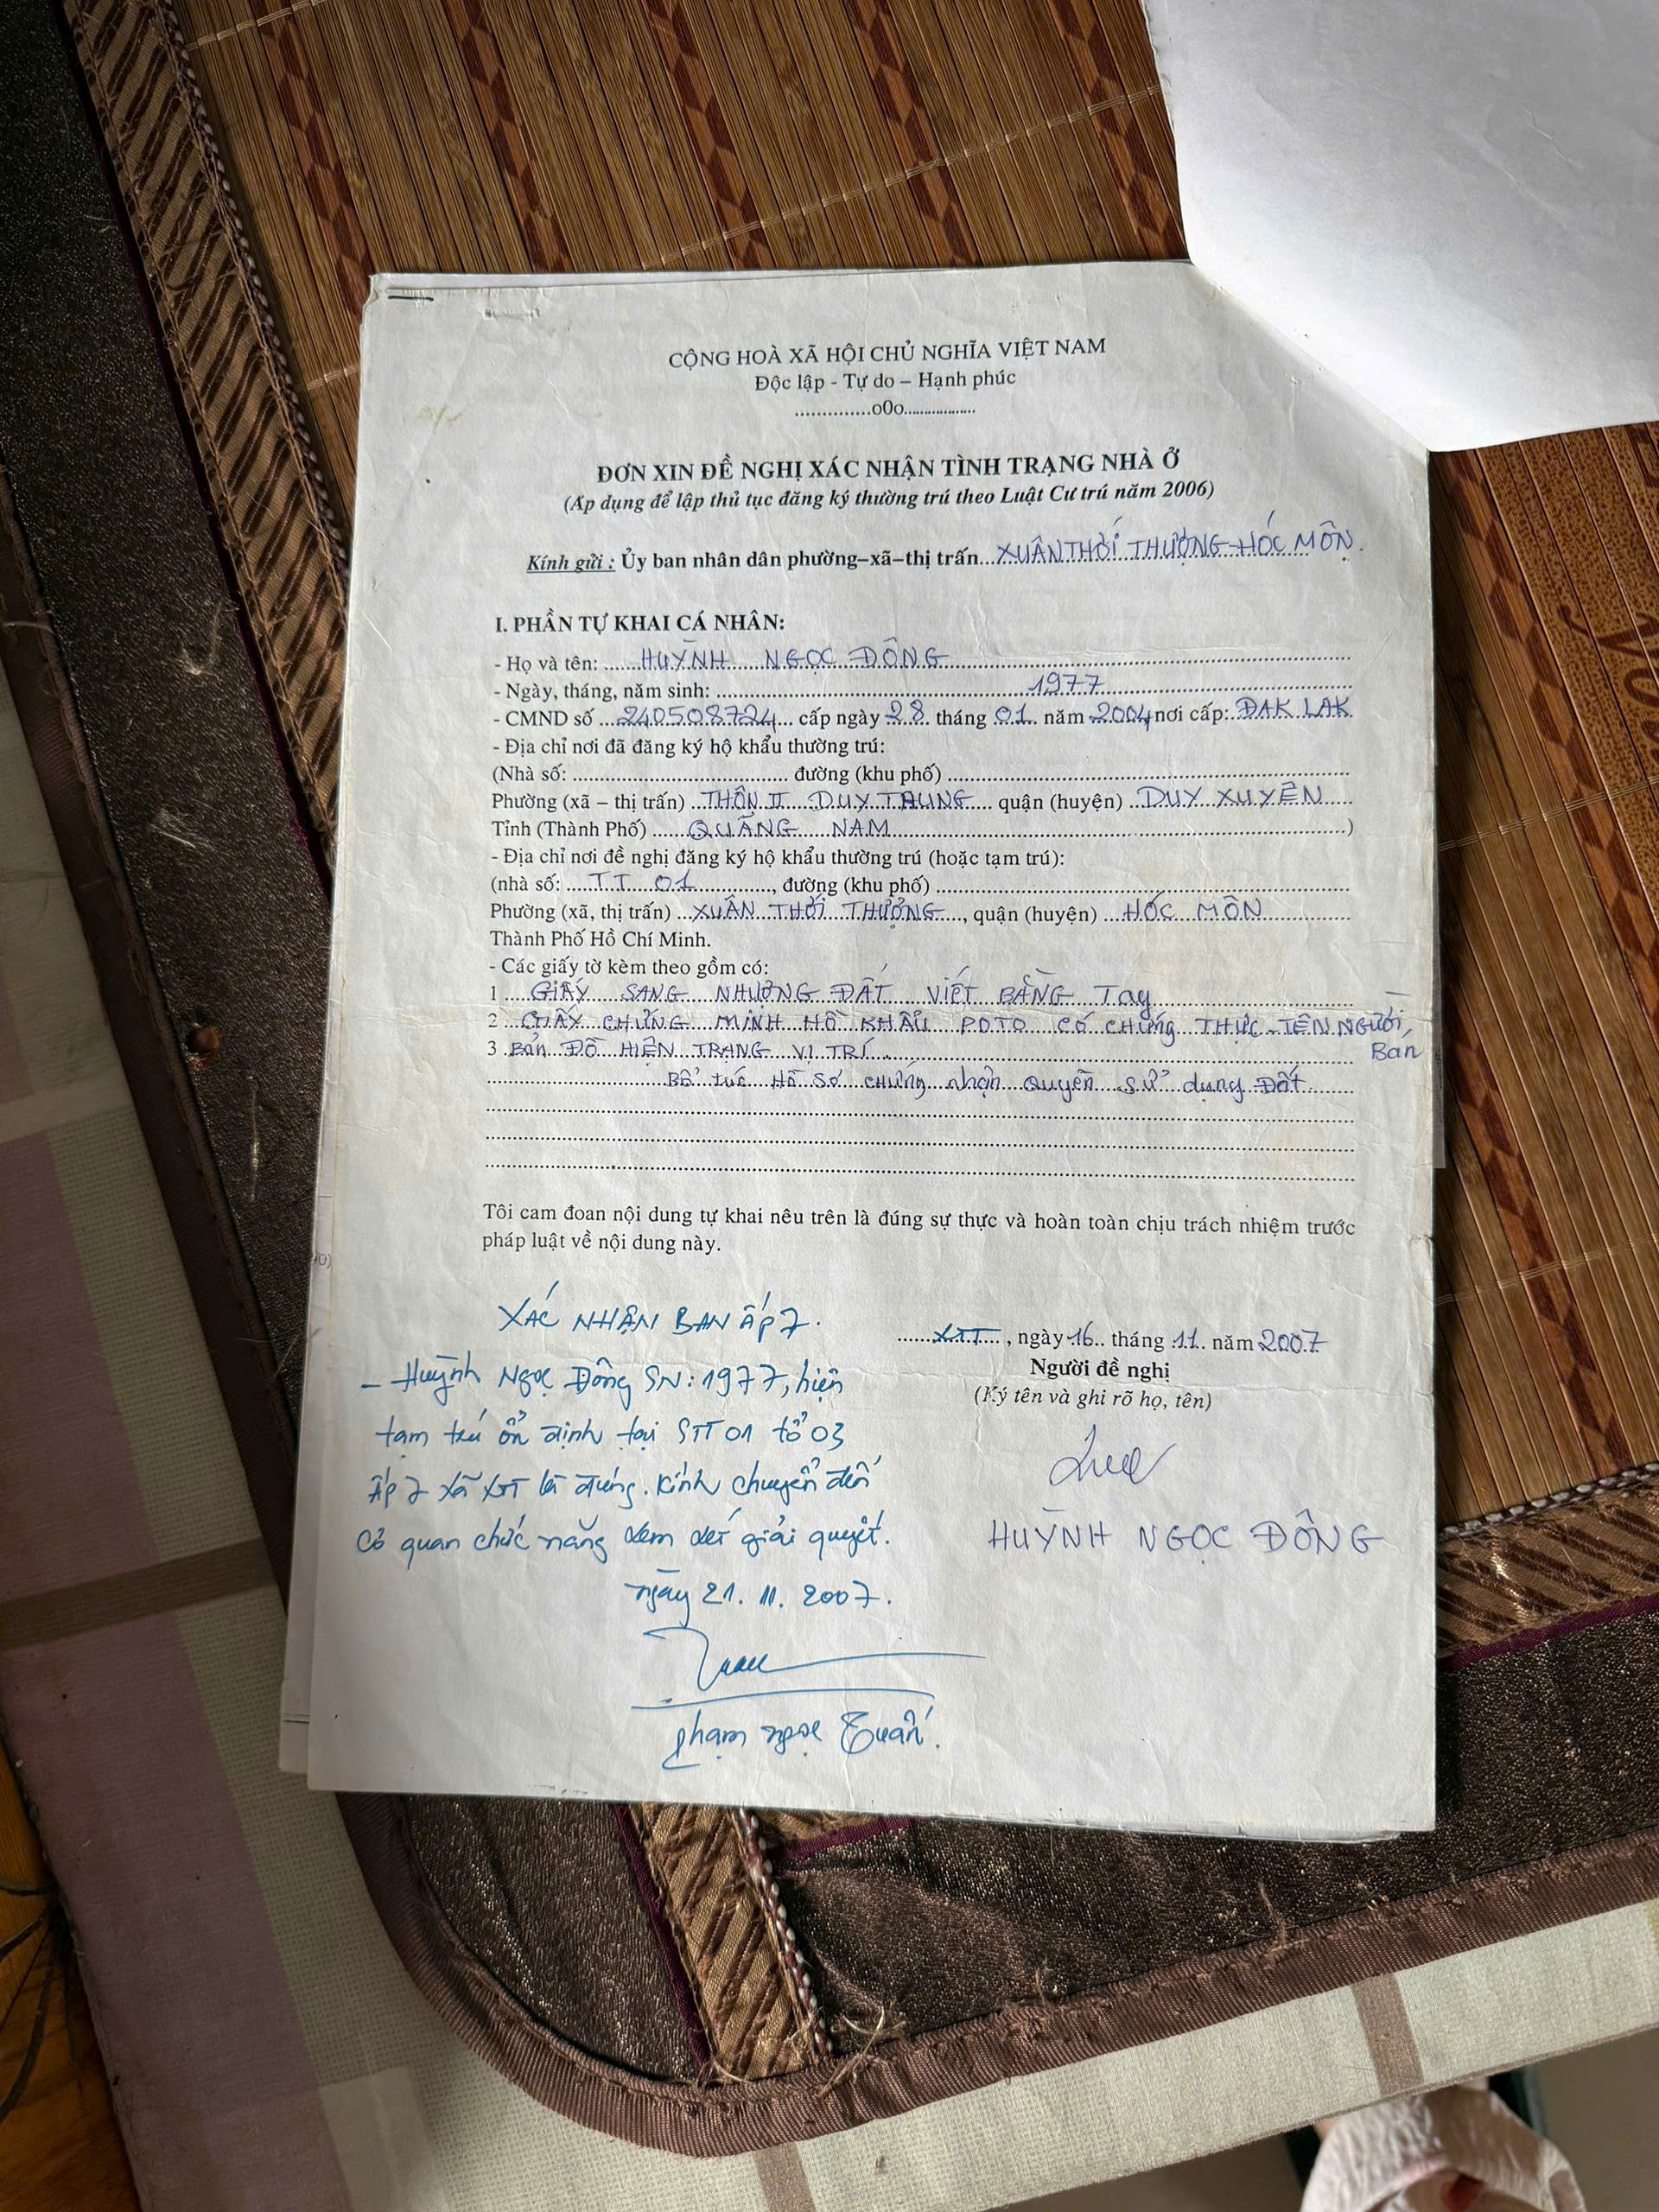 CỘNG HOÀ XÃ HỘI CHỦ NGHĨA VIỆT NAM
Độc lập - Tự do – Hạnh phúc
..............o0o..................
ĐƠN XIN ĐỀ NGHỊ XÁC NHẬN TÌNH TRẠNG NHÀ Ở
(Áp dụng để lập thủ tục đăng ký thường trú theo Luật Cư trú năm 2006)
Kính gửi : Ủy ban nhân dân phường–xã–thị trấn...XUÂN THỚI THƯỢNG-HÓC MÔN.
I. PHẦN TỰ KHAI CÁ NHÂN:
- Họ và tên: HUỲNH NGỌC ĐÔNG
- Ngày, tháng, năm sinh: 1977
- CMND số 240508724 cấp ngày 28 tháng 01 năm 2004 nơi cấp: ĐAK LAK
- Địa chỉ nơi đã đăng ký hộ khẩu thường trú:
(Nhà số: ........ đường (khu phố) ........
Phường (xã – thị trấn) THÔN II DUY TRUNG quận (huyện) DUY XUYÊN
Tỉnh (Thành Phố) QUẢNG NAM )
- Địa chỉ nơi đề nghị đăng ký hộ khẩu thường trú (hoặc tạm trú):
(nhà số: TT 01 , đường (khu phố) ........
Phường (xã, thị trấn) XUÂN THỚI THƯỢNG, quận (huyện) HÓC MÔN
Thành Phố Hồ Chí Minh.
- Các giấy tờ kèm theo gồm có:
1 GIẤY SANG NHƯỢNG ĐẤT VIẾT BẰNG Tay
2 GIẤY CHỨNG MINH HỘ KHẨU POTO CÓ CHỨNG THỰC-TÊN NGƯỜI
Bán
3 Bản ĐỒ HIỆN TRẠNG VỊ TRÍ.
Bổ túc Hồ Sơ chứng nhận Quyền sử dụng Đất
Tôi cam đoan nội dung tự khai nêu trên là đúng sự thực và hoàn toàn chịu trách nhiệm trước
pháp luật về nội dung này.
XTT, ngày 16 tháng 11 năm 2007
Người đề nghị
(Ký tên và ghi rõ họ, tên)
HUỲNH NGỌC ĐÔNG
XÁC NHẬN BAN ẤP 7.
– Huỳnh Ngọc Đông SN: 1977, hiện
tạm trú ổn định tại STT 01 tổ 03
ấp 7 xã XTT là đúng. Kính chuyển đến
cơ quan chức năng xem xét giải quyết.
ngày 21. 11. 2007.
Phạm Ngọc